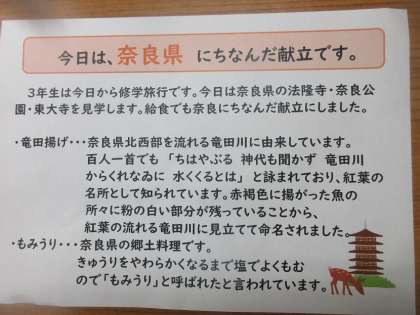 今日は、奈良県 にちなんだ献立です。
３年生は今日から修学旅行です。今日は奈良県の法隆寺・奈良公
園・東大寺を見学します。給食でも奈良にちなんだ献立にしました。
・竜田揚げ・・・奈良県北西部を流れる竜田川に由来しています。
百人一首でも 「ちはやぶる 神代も聞かず 竜田川
からくれなゐに 水くくるとは」 と詠まれており、紅葉の
名所として知られています。赤褐色に揚がった魚の
所々に粉の白い部分が残っていることから、
紅葉の流れる竜田川に見立てて命名されました。
・もみうり・・・奈良県の郷土料理です。
きゅうりをやわらかくなるまで塩でよくもむ
ので「もみうり」と呼ばれたと言われています。